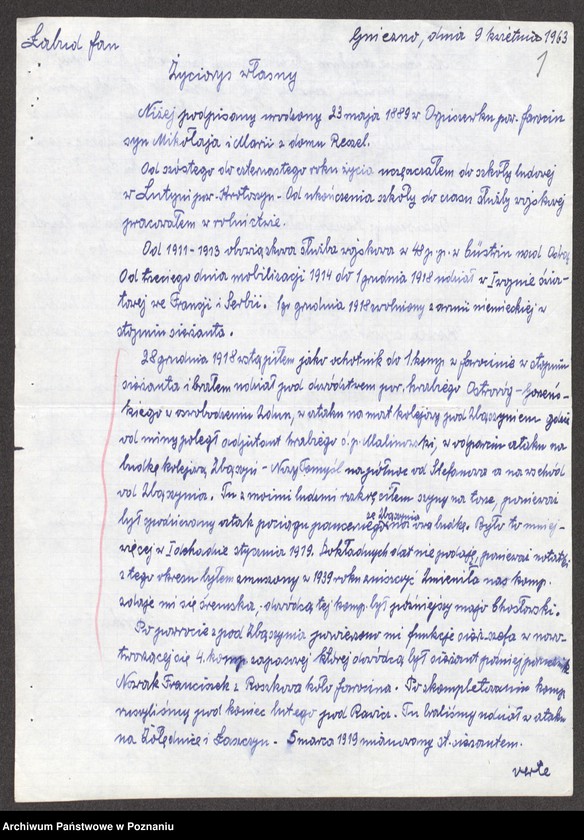 Łabud Jan
Gniezno, dnia 9 kwietnia 1963
1
Życiorys własny
Niżej podpisany urodzony 23 maja 1889 w Ogniszewku pow. Jarocin
syn Mikołaja i Marii z domu Ressel.
Od szóstego do czternastego roku życia uczęszczałem do szkoły ludowej
w Lutyni pow. Krotoszyn - Od ukończenia szkoły do czasu służby wojskowej
pracowałem w rolnictwie.
Od 1911-1913 obowiązkowa służba wojskowa w 48 p.p. w Cüstrin nad Odrą
Od trzeciego dnia mobilizacji 1914 do 1 grudnia 1918 udział w I wojnie świa-
towej we Francji i Serbii. 1go grudnia 1918 zwolniony z armii niemieckiej w
stopniu sierżanta.
28 grudnia 1918 wstąpiłem jako ochotnik do 1 komp. w Jarocinie w stopniu
sierżanta i brałem udział pod dowództwem por. hrabiego Ostroróg-Gorzeń-
skiego w oswobodzeniu Zdun, w ataku na most kolejowy pod Zbąszyniem gdzie
od miny poległ adjutant hrabiego ś.p. Malinowski, w odparciu ataku na
budkę kolejową Zbąszyń - Nowy Tomyśl na północ od Stefanowa a na wschód
od Zbąszynia. Tu z moimi ludźmi rozkręciłem szyny na torze, ponieważ
był spodziewany atak pociągu pancernego ze Zbąszynia na budkę. Było to mniej-
więcej w I dekadzie stycznia 1919. Dokładnych dat nie podaję, ponieważ notatki
z tego okresu byłem zmuszony w 1939 roku zniszczyć. Zmieniła nas komp.
zdaje mi się śremska, dowódcą tej komp. był późniejszy major Chosłowski.
Po powrocie z pod Zbąszynia powierzono mi funkcje sierż. szefa w nowo-
tworzącej się 4. komp. zapasowej której dowódcą był sierżant później porucznik
Nowak Franciszek z Roszkowa koło Jarocina. Po skompletowaniu komp.
ruszyliśmy pod koniec lutego pod Rawicz. Tu braliśmy udział w ataku
na Żołędnicę i Łaszczyn - 5 marca 1919 mianowany st. sierżantem.
verte
Archiwum Państwowe w Poznaniu